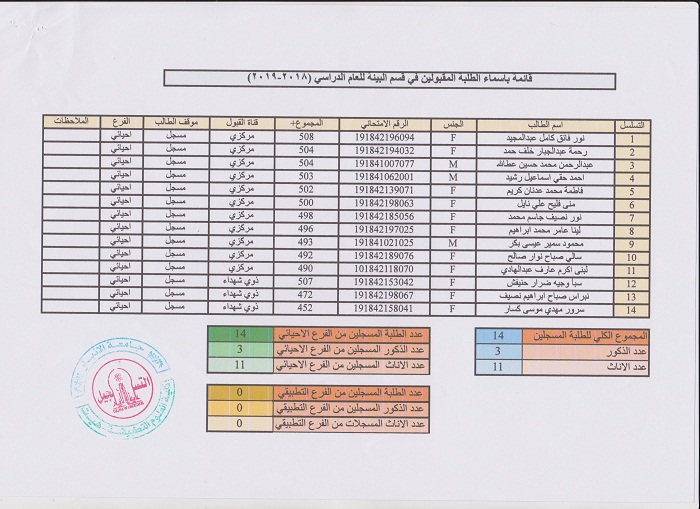 قائمة باسماء الطلبة المقبولين في قسم البيئة للعام الدراسي (٢٠١٨-٢٠١٩)
التسلسل اسم الطالب الجنس الرقم الامتحاني المجموع+ قناة القبول موقف الطالب الفرع الملاحظات
1 نور فائق كامل عبدالمجيد F 191842196094 508 مركزي مسجل احيائي
2 رحمة عبدالجبار خلف حمد F 191842194032 504 مركزي مسجل احيائي
3 عبدالرحمن محمد حسين عطاالله M 191841007077 504 مركزي مسجل احيائي
4 احمد حقي اسماعيل رشيد M 191841062001 503 مركزي مسجل احيائي
5 فاطمة محمد عدنان كريم F 191842139071 502 مركزي مسجل احيائي
6 منى فليح علي نايل F 191842198063 500 مركزي مسجل احيائي
7 نور نصيف جاسم محمد F 191842185056 498 مركزي مسجل احيائي
8 لينا عامر محمد ابراهيم F 191842197025 496 مركزي مسجل احيائي
9 محمود سمير عيسى بكر M 191841021025 493 مركزي مسجل احيائي
10 سالي صباح نوار صالح F 191842189076 492 مركزي مسجل احيائي
11 لبنى اكرم عارف عبدالهادي F 101842118070 490 مركزي مسجل احيائي
12 سبأ وجيه ضرار حنيفش F 191842153042 507 ذوي شهداء مسجل احيائي
13 نبراس صباح ابراهيم نصيف F 191842198067 472 ذوي شهداء مسجل احيائي
14 سرور مهدي موسى كسار F 191842158041 452 ذوي شهداء مسجل احيائي
المجموع الكلي للطلبة المسجلين 14
عدد الذكور 3
عدد الاناث 11
عدد الطلبة المسجلين من الفرع الاحيائي 14
عدد الذكور المسجلين من الفرع الاحيائي 3
عدد الاناث المسجلين من الفرع الاحيائي 11
عدد الطلبة المسجلين من الفرع التطبيقي 0
عدد الذكور المسجلين من الفرع التطبيقي 0
عدد الاناث المسجلات من الفرع التطبيقي 0
جامعة الانبار
التسجيل